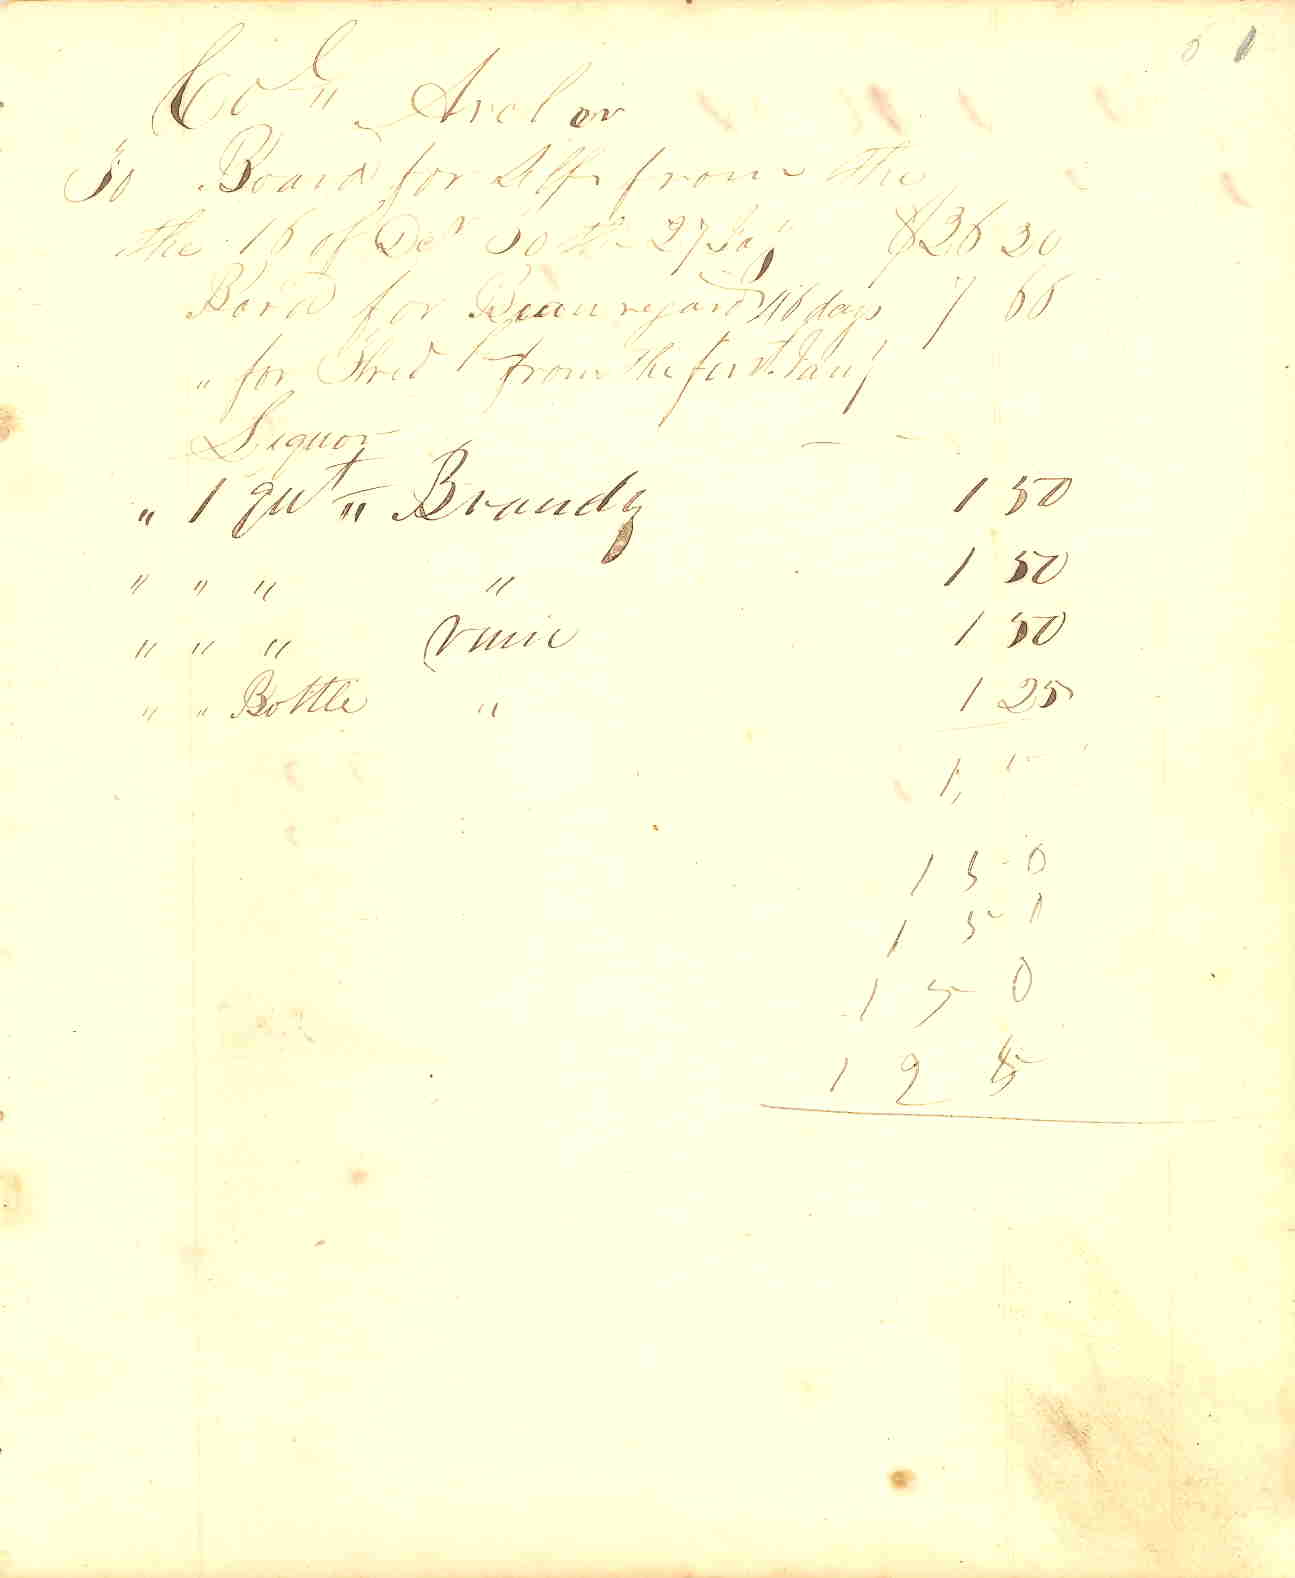 51
Col " Archer
To Board for Self from the
the 16 of Dec to the 27 Jay $26 30
Bord for Beauregard 46 days 7 66
" for from the first Jany
Liquor
" 1 qut " Brandy 1 50
" " " " 1 50
" " " vine 1 50
" " Bottle " 1 25
1
1 5 0
1 5 0
1 5 0
1 2 5